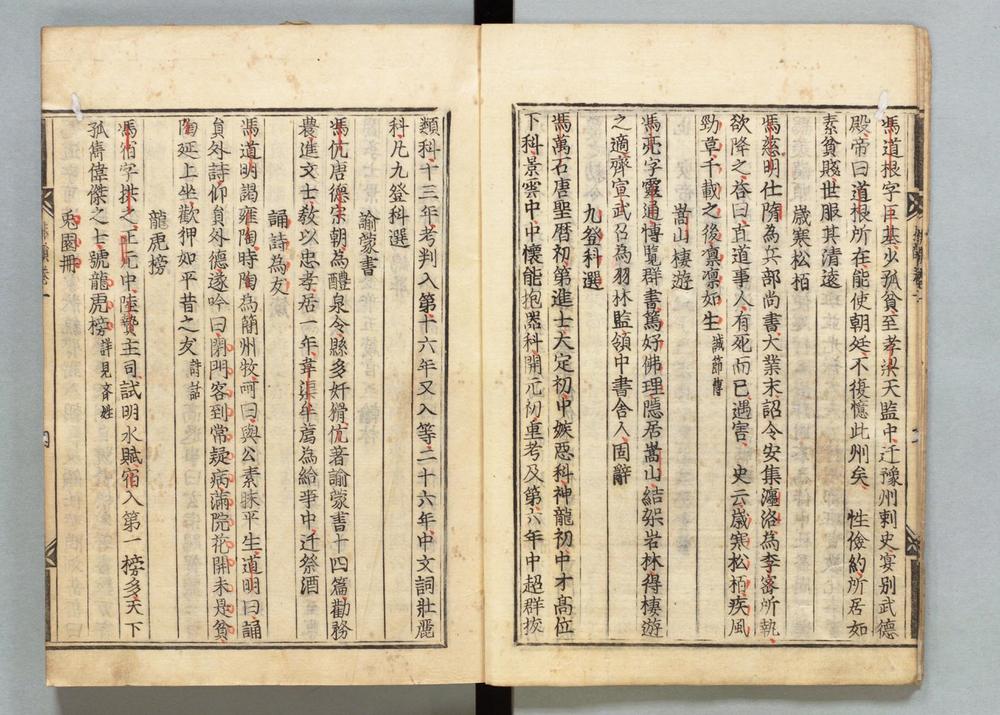 馮道根字巨基少孤貧至孝梁天監中迁豫州刺史宴别武德
殿帝曰道根所在能使朝廷不復憶此州矣 性儉約所居如
素貧賤世服其清遠
歲寒松栢
馮慈明仕隋為兵部尚書大業末詔令安集瀍洛為李密所執
欲降之荅曰直道事人有死而已遇害 史云歲寒松栢疾風
勁草千載之後凛凛如生 誠節傳
嵩山棲遊
馮亮字靈通博覧群書篤好佛理隠居嵩山結架岩林得棲遊
之適齊宣武召為羽林監領中書舎人固辭
九登科選
馮萬石唐聖暦初第進士大定初中嫉惡科神龍初中才髙位
下科景雲中中懷能抱器科開元初重考及第六年中超群拔
類科十三年考判入第十六年又入等二十六年中文詞壯麗
科凡九登科選
諭蒙書
馮伉唐德宗朝為醴泉令縣多奸猾伉著諭蒙書十四篇勸務
農進文士教以忠孝居一年韋渠牟薦為給事中迁祭酒
誦詩為友
馮道明謁雍陶時陶為簡州牧呵曰與公素昧平生道明曰誦
貟外詩仰貟外德遂吟曰閉門客到常疑病滿院花開未是貧
陶延上坐歡押如平昔之友 詩話
龍虎榜
馮宿字拱之正元中陸贄主司試明水賦宿入第一榜多天下
孤儁偉傑之士號龍虎榜 詳見齊姓
兎園冊